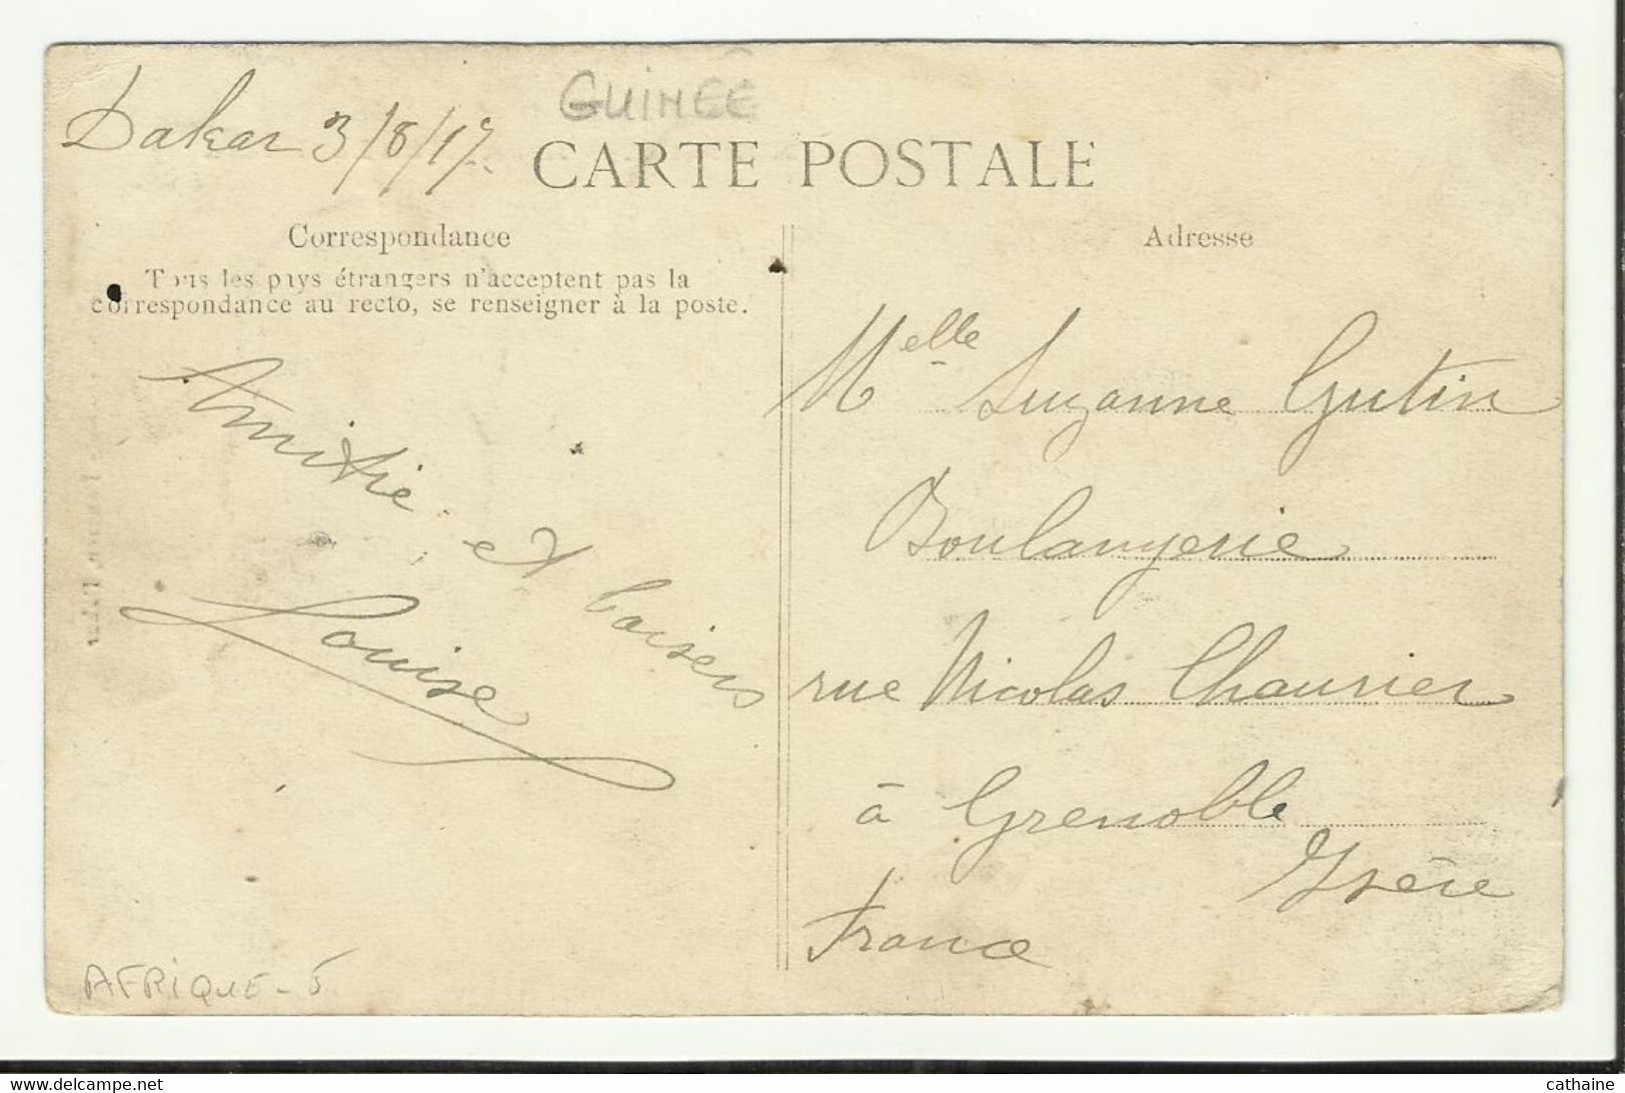 GUINÉE
Dakar 3/8/17.
CARTE POSTALE
Correspondance
Tous les pays étrangers n'acceptent pas la
correspondance au recto, se renseigner à la poste.
Amitié et baisers
Louise
AFRIQUE - 5
Adresse
Melle Suzanne Gutin
Boulangerie
rue Nicolas Chaurier
à Grenoble
Isère
France
delcampe.net
cathaine